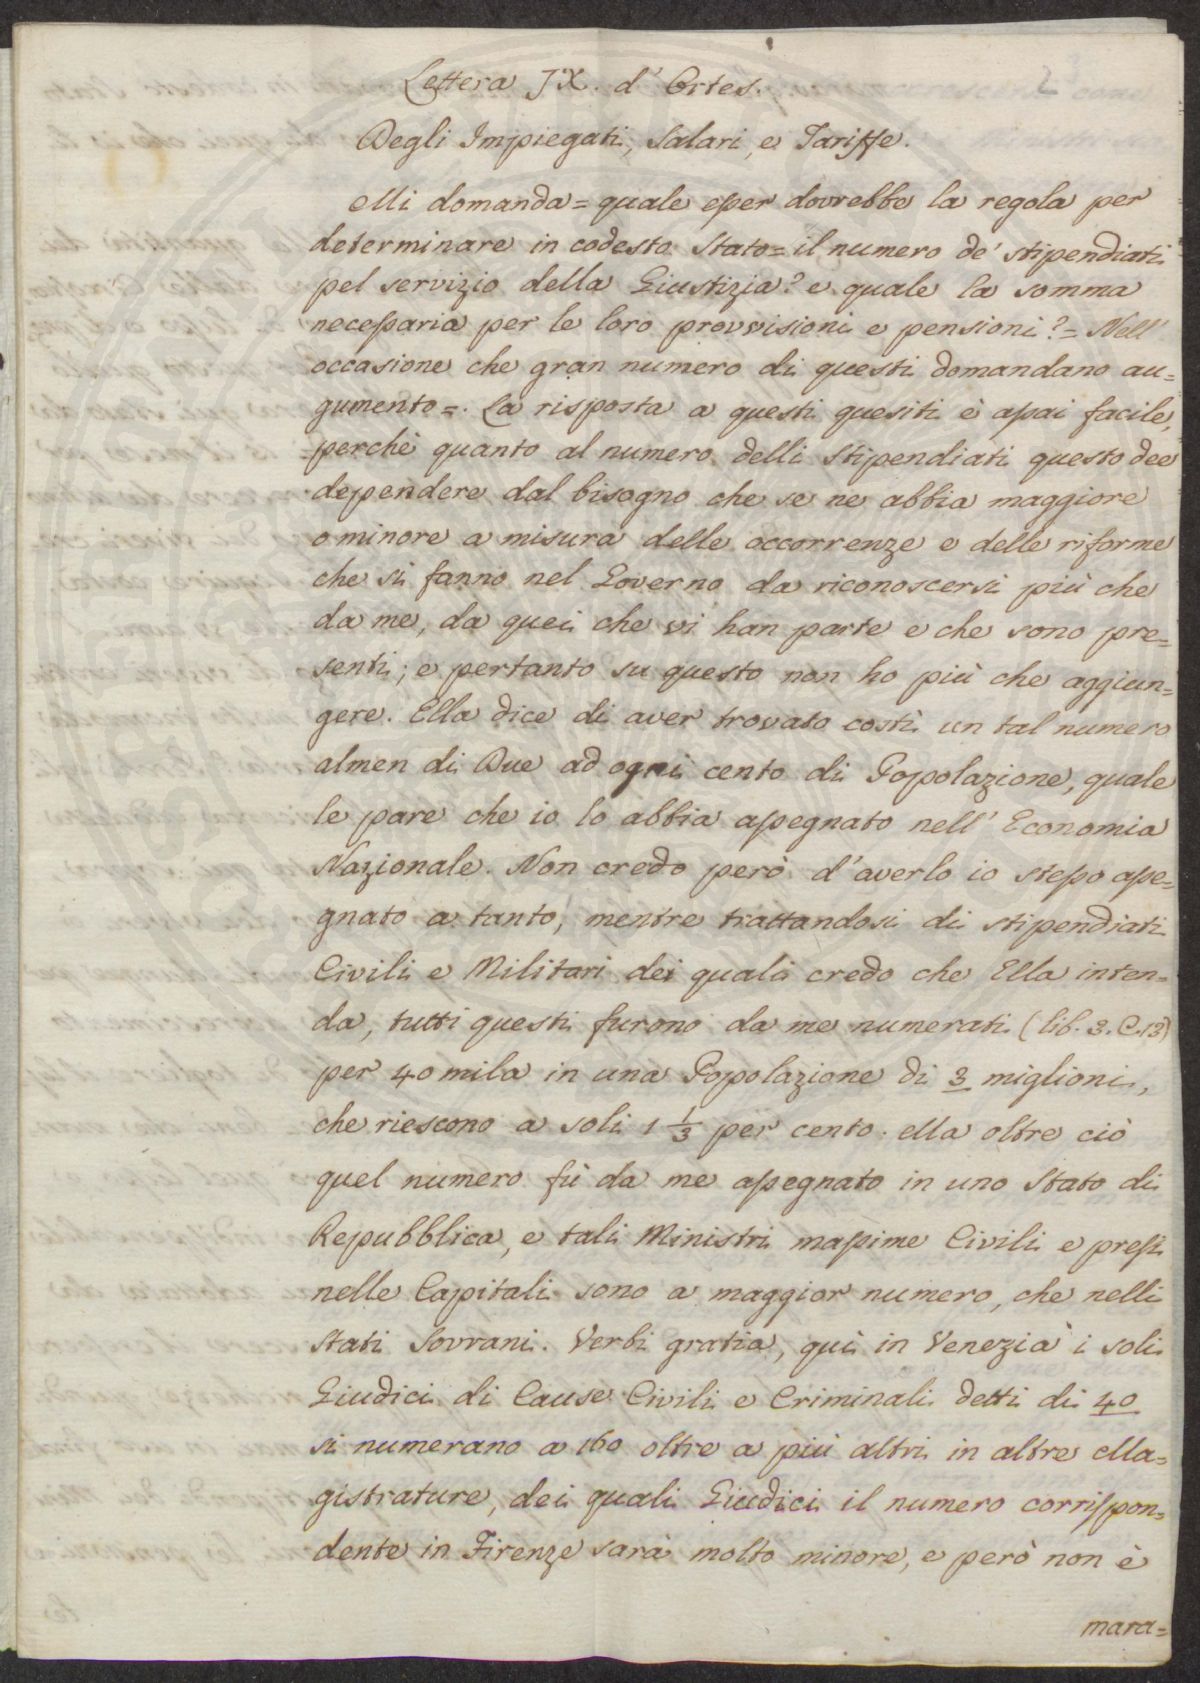 Lettera IX. d' Ortes.
Degli Impiegati, Salari, e Tariffe.
Mi domanda = quale esser dovrebbe la regola per
determinare in codesto Stato = il numero de' stipendiati
pel servizio della Giustizia? e quale la somma
necessaria per le loro provvisioni e pensioni? = Nell'
occasione che gran numero di questi domandano au=
gumento =. La risposta a questi quesiti è assai facile,
perchè quanto al numero delli Stipendiati questo dee
dependere dal bisogno che se ne abbia maggiore
o minore a misura delle occorrenze e delle riforme
che si fanno nel Governo da riconoscersi più che
da me, da quei che vi han parte e che sono pre=
senti; e pertanto su questo non ho più che aggiun=
gere. Ella dice di aver trovato costì un tal numero
almen di Due ad ogni cento di Popolazione, quale
le pare che io lo abbia assegnato nell' Economia
Nazionale. Non credo però d'averlo io stesso asse=
gnato a tanto, mentre trattandosi di stipendiati
Civili e Militari dei quali credo che Ella inten=
da, tutti questi furono da me numerati (lib. 3. C. 13)
per 40 mila in una Popolazione di 3 miglioni,
che riescono a soli 1 1/3 per cento. Ma oltre ciò
quel numero fù da me assegnato in uno Stato di
Repubblica, e tali Ministri massime Civili e pressi
nelle Capitali sono a maggior numero, che nelli
Stati Sovrani. Verbi gratia, quì in Venezia i soli
Giudici di Cause Civili e Criminali detti di 40
si numerano a 160 oltre a più altri in altre Ma=
gistrature, dei quali Giudici il numero corrispon=
dente in Firenze sarà molto minore, e però non è
mara=